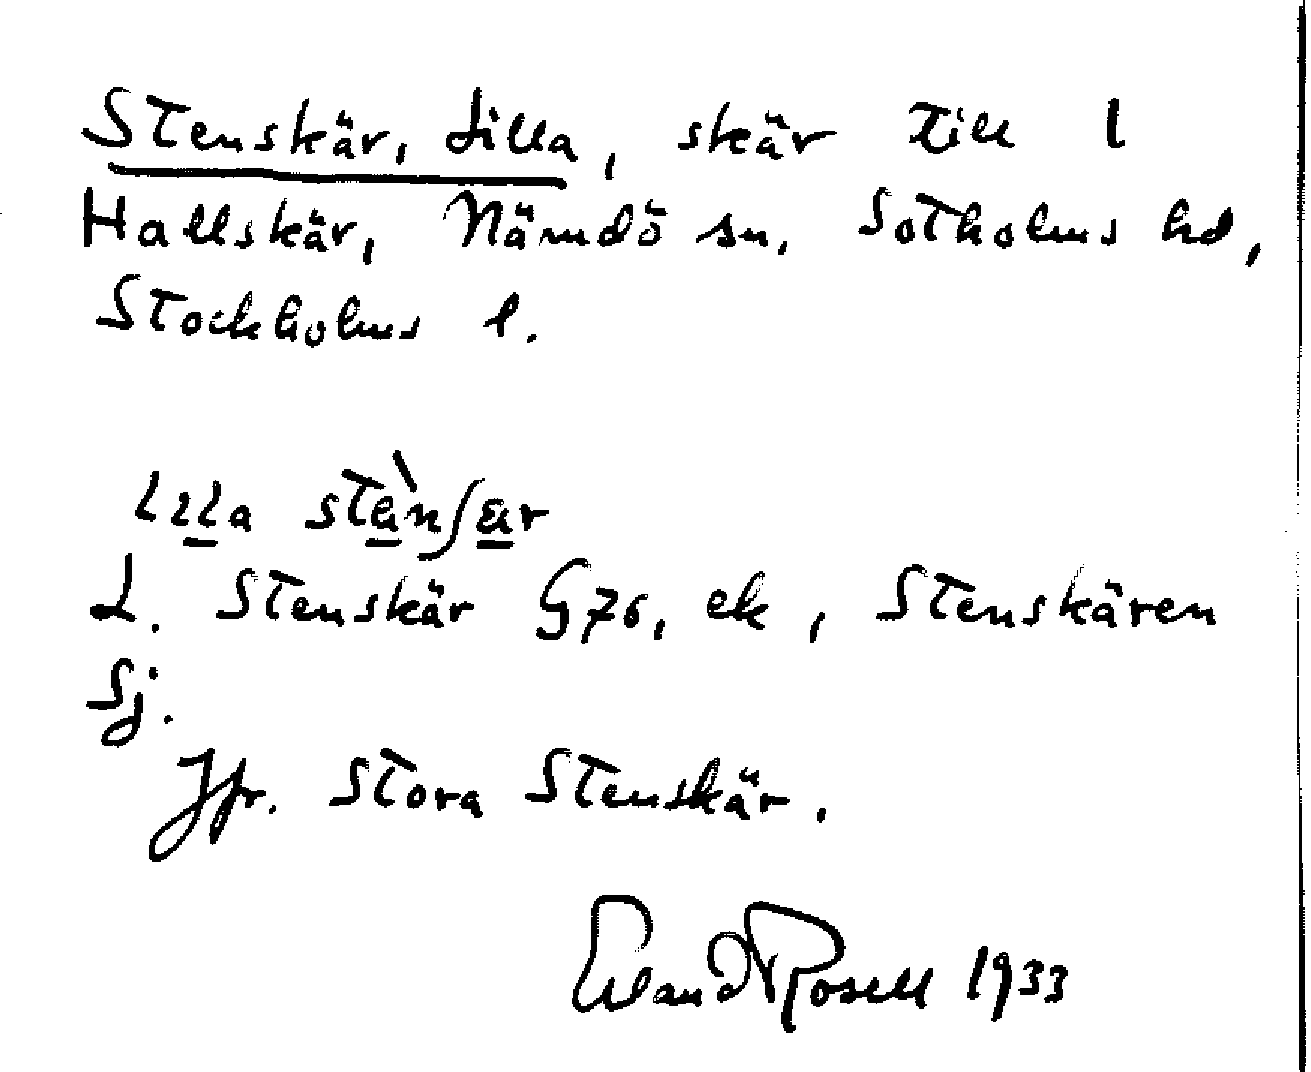 Stenskär, Lilla, skär till 1
Hallskär, Nämdö sn, Sotholms hd,
Stockholms l.
lılla stànʃär
L. Stenskär G76, ek, Stenskären
Sj.
Jfr. Stora Stenskär.
Erland Rosell 1933